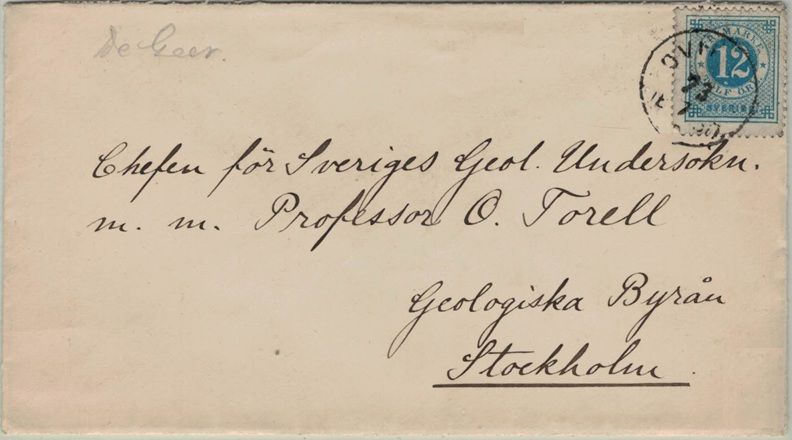 De Geer.
FRIMÄRKE
12
TOLF ÖRE
SVERIGE
Chefen för Sveriges Geol. Undersökn.
m. m. Professor O. Torell
Geologiska Byrån
Stockholm.